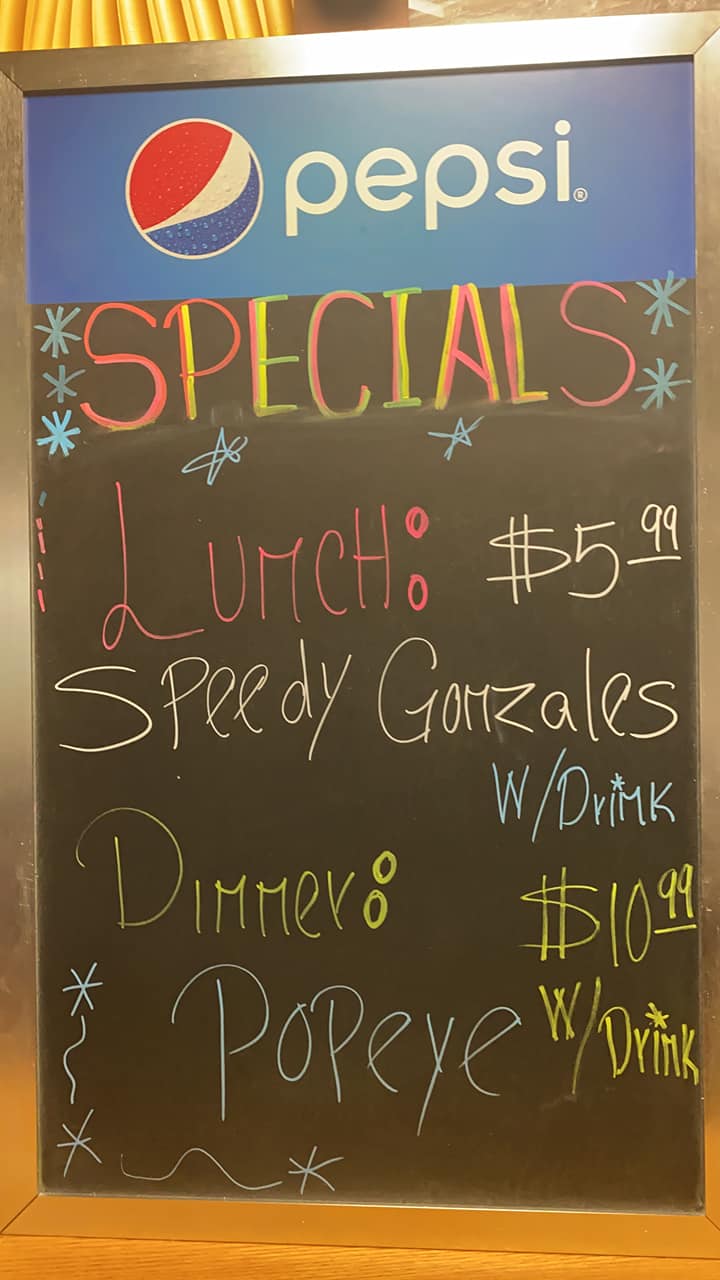 pepsi®
SPECIALS
Lunch: $5.99
Speedy Gonzales
W/Drink
Dinner: $10.99
Popeye W/Drink